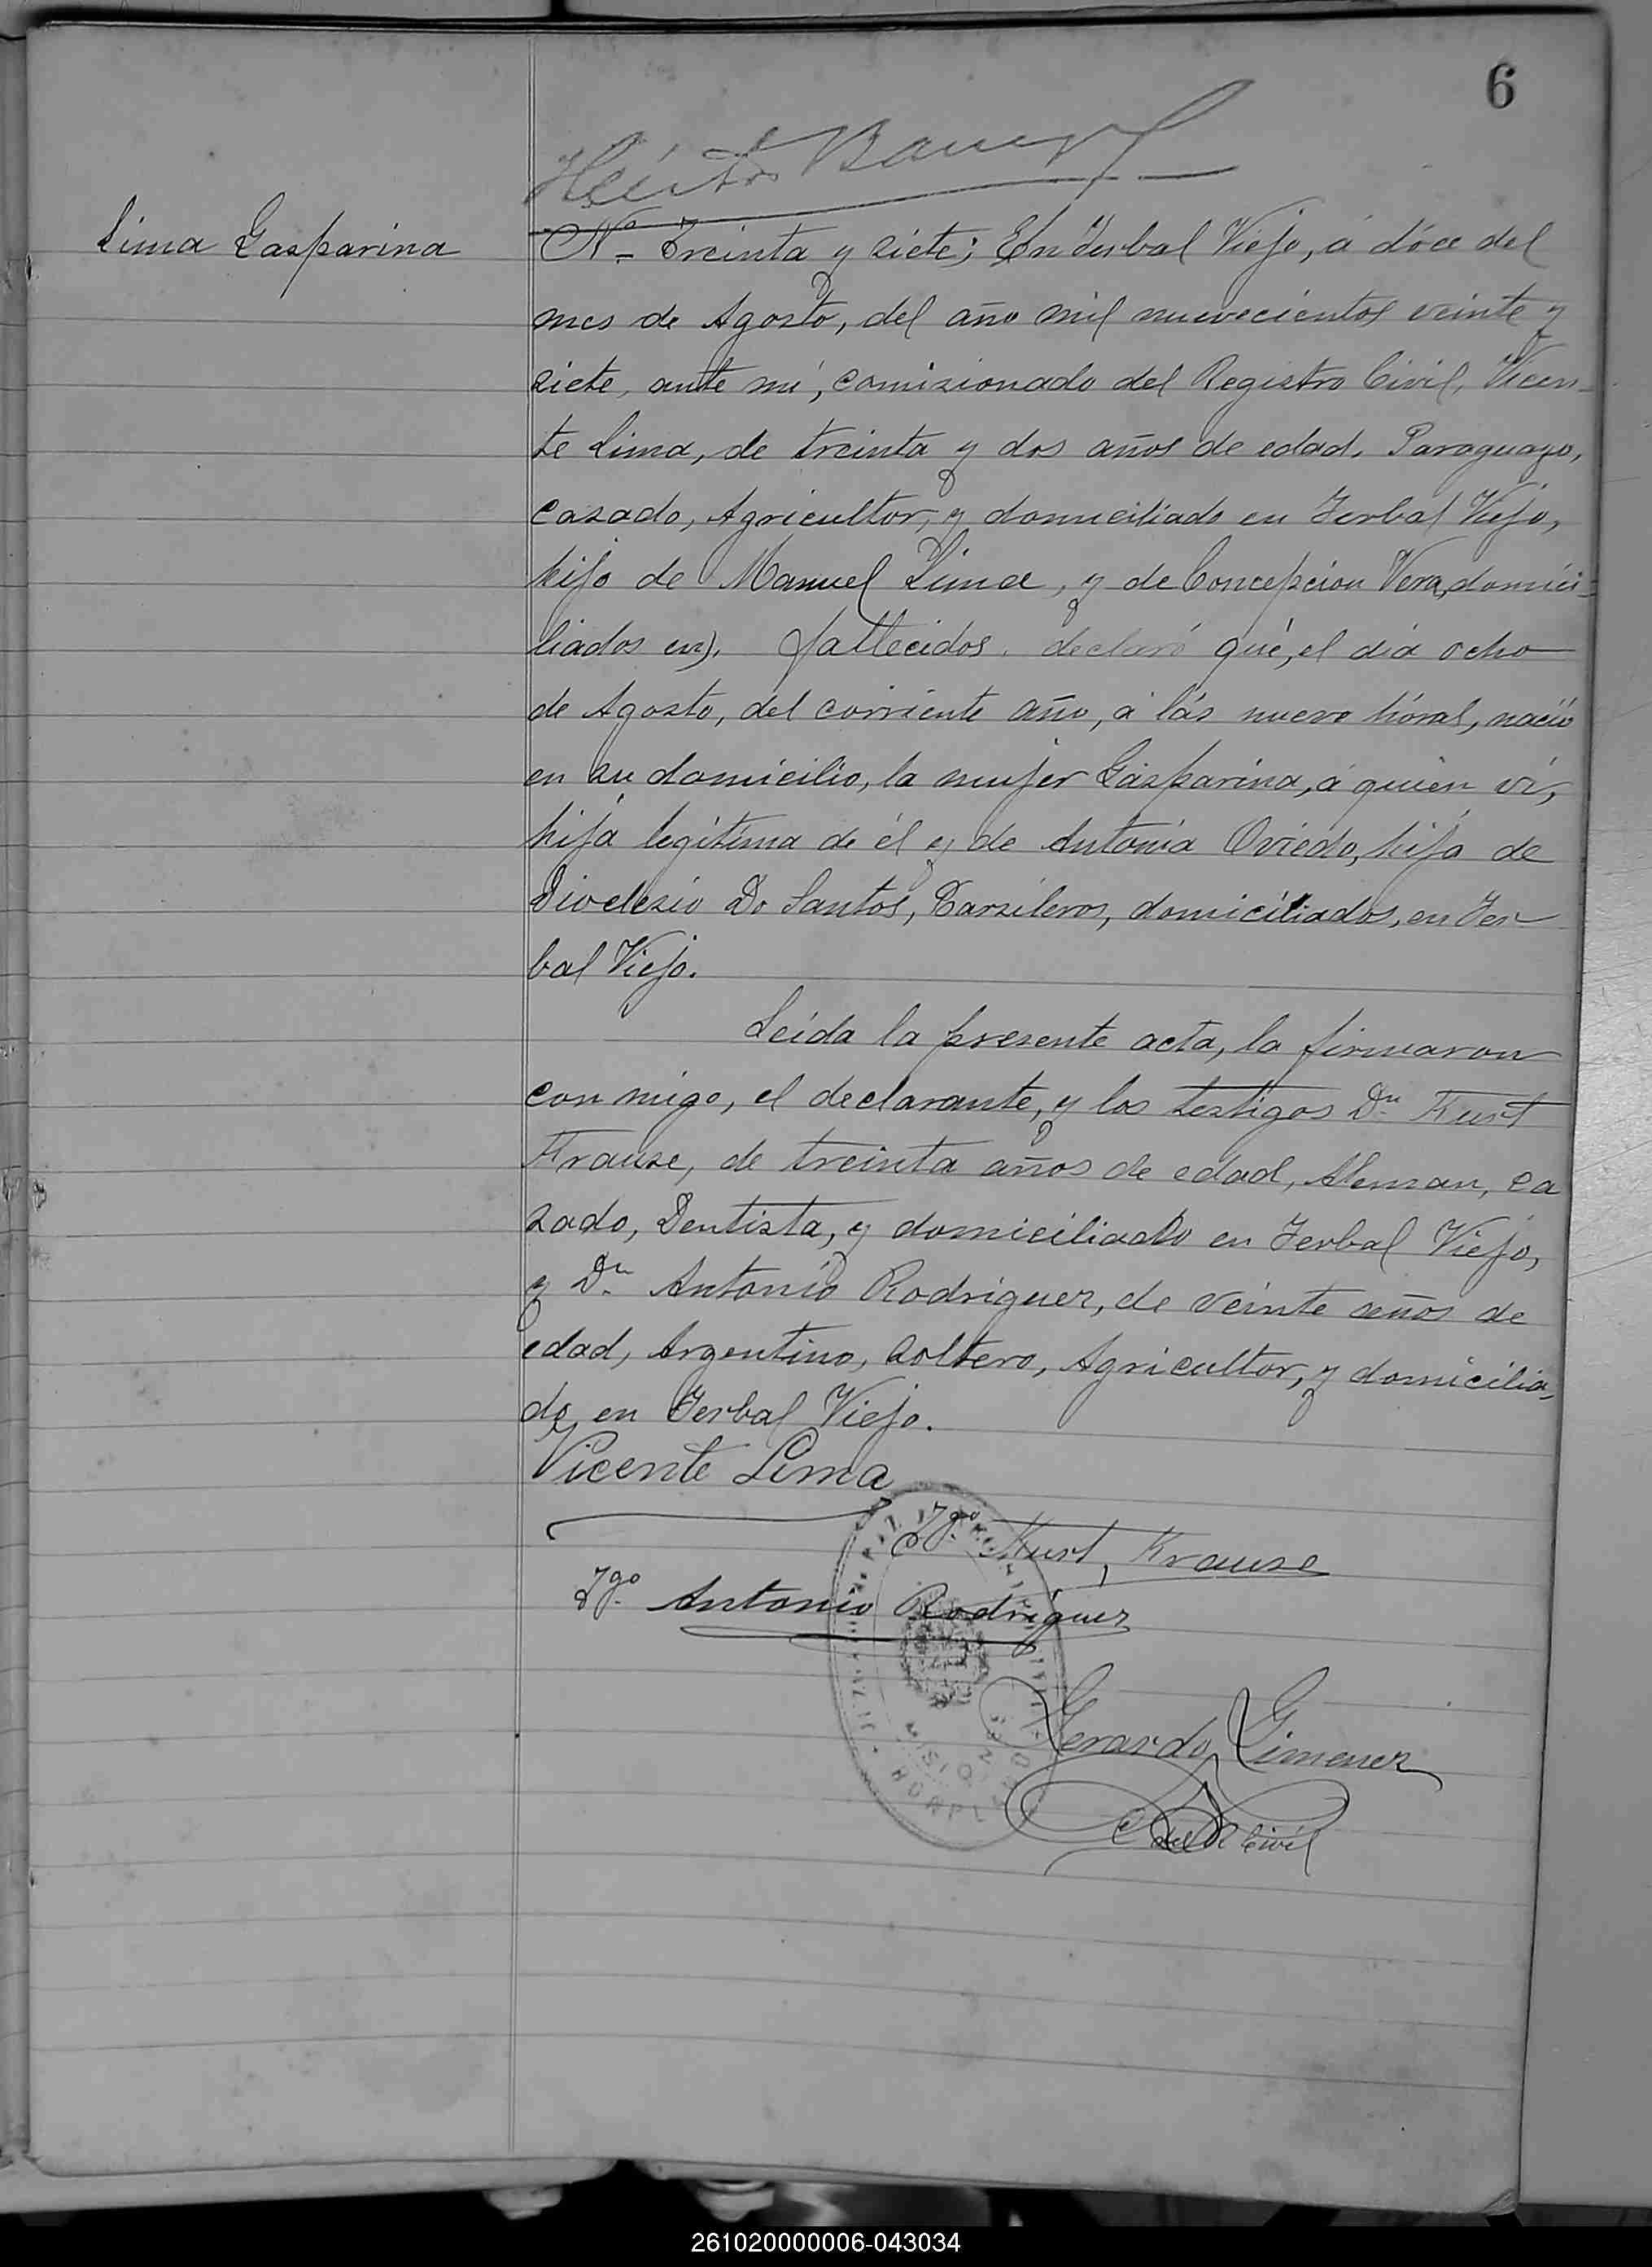 6
Lima Gasparina
Nº - Treinta y siete; En Yerbal Viejo, á dóce del
mes de Agosto, del año mil nuevecientos veinte y
siete, ante mi, comisionado del Registro Civil, Vicen-
te Lima, de treinta y dos años de edad, Paraguayo,
casado, Agricultor, y domiciliado en Yerbal Viejo,
hijo de Manuel Lima, y de Concepcion Vera, domici-
liados en). fallecidos. declaró qué, el día ocho
de Agosto, del corriente año, á lás nueve hóras, nació
en su domicilio, la mujer Gasparina, á quien ví,
hija legitima de él y de Antonia Oviedo, hija de
Dioclesio Do Santos, Barsileros, domiciliados, en Yer
bal Viejo.
Leida la presente acta, la firmaron
con migo, el declarante, y los testigos Dn Kurt
Krause, de treinta años de edad, Aleman, ca
sado, Dentista, y domiciliado en Yerbal Viejo,
y Dn. Antonio Rodriguez, de veinte años de
edad, Argentino, soltero, Agricultor, y domicilia-
do, en Yerbal Viejo.
Vicente Lima
Tgo. Kurt, Krause
Tgo. Antonio Rodriguez
Gerardo Gimenez
C del R Civil
MISIONES
261020000006-043034